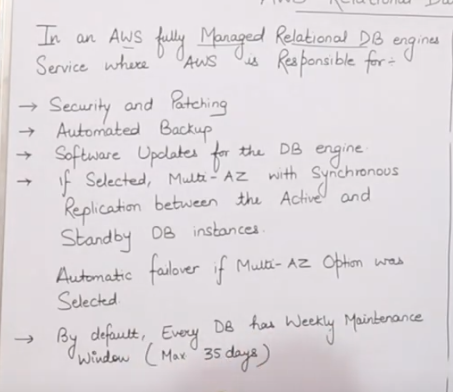 AWS Relational
In an AWS fully Managed Relational DB engines
Service where AWS is Responsible for:-
→ Security and Patching
→ Automated Backup
→ Software Updates for the DB engine.
→ If Selected, Multi-AZ with Synchronous
Replication between the Active and
Standby DB instances.
Automatic failover if Multi-AZ Option was
Selected
→ By default, Every DB has Weekly Maintenance
Window (Max 35 days)